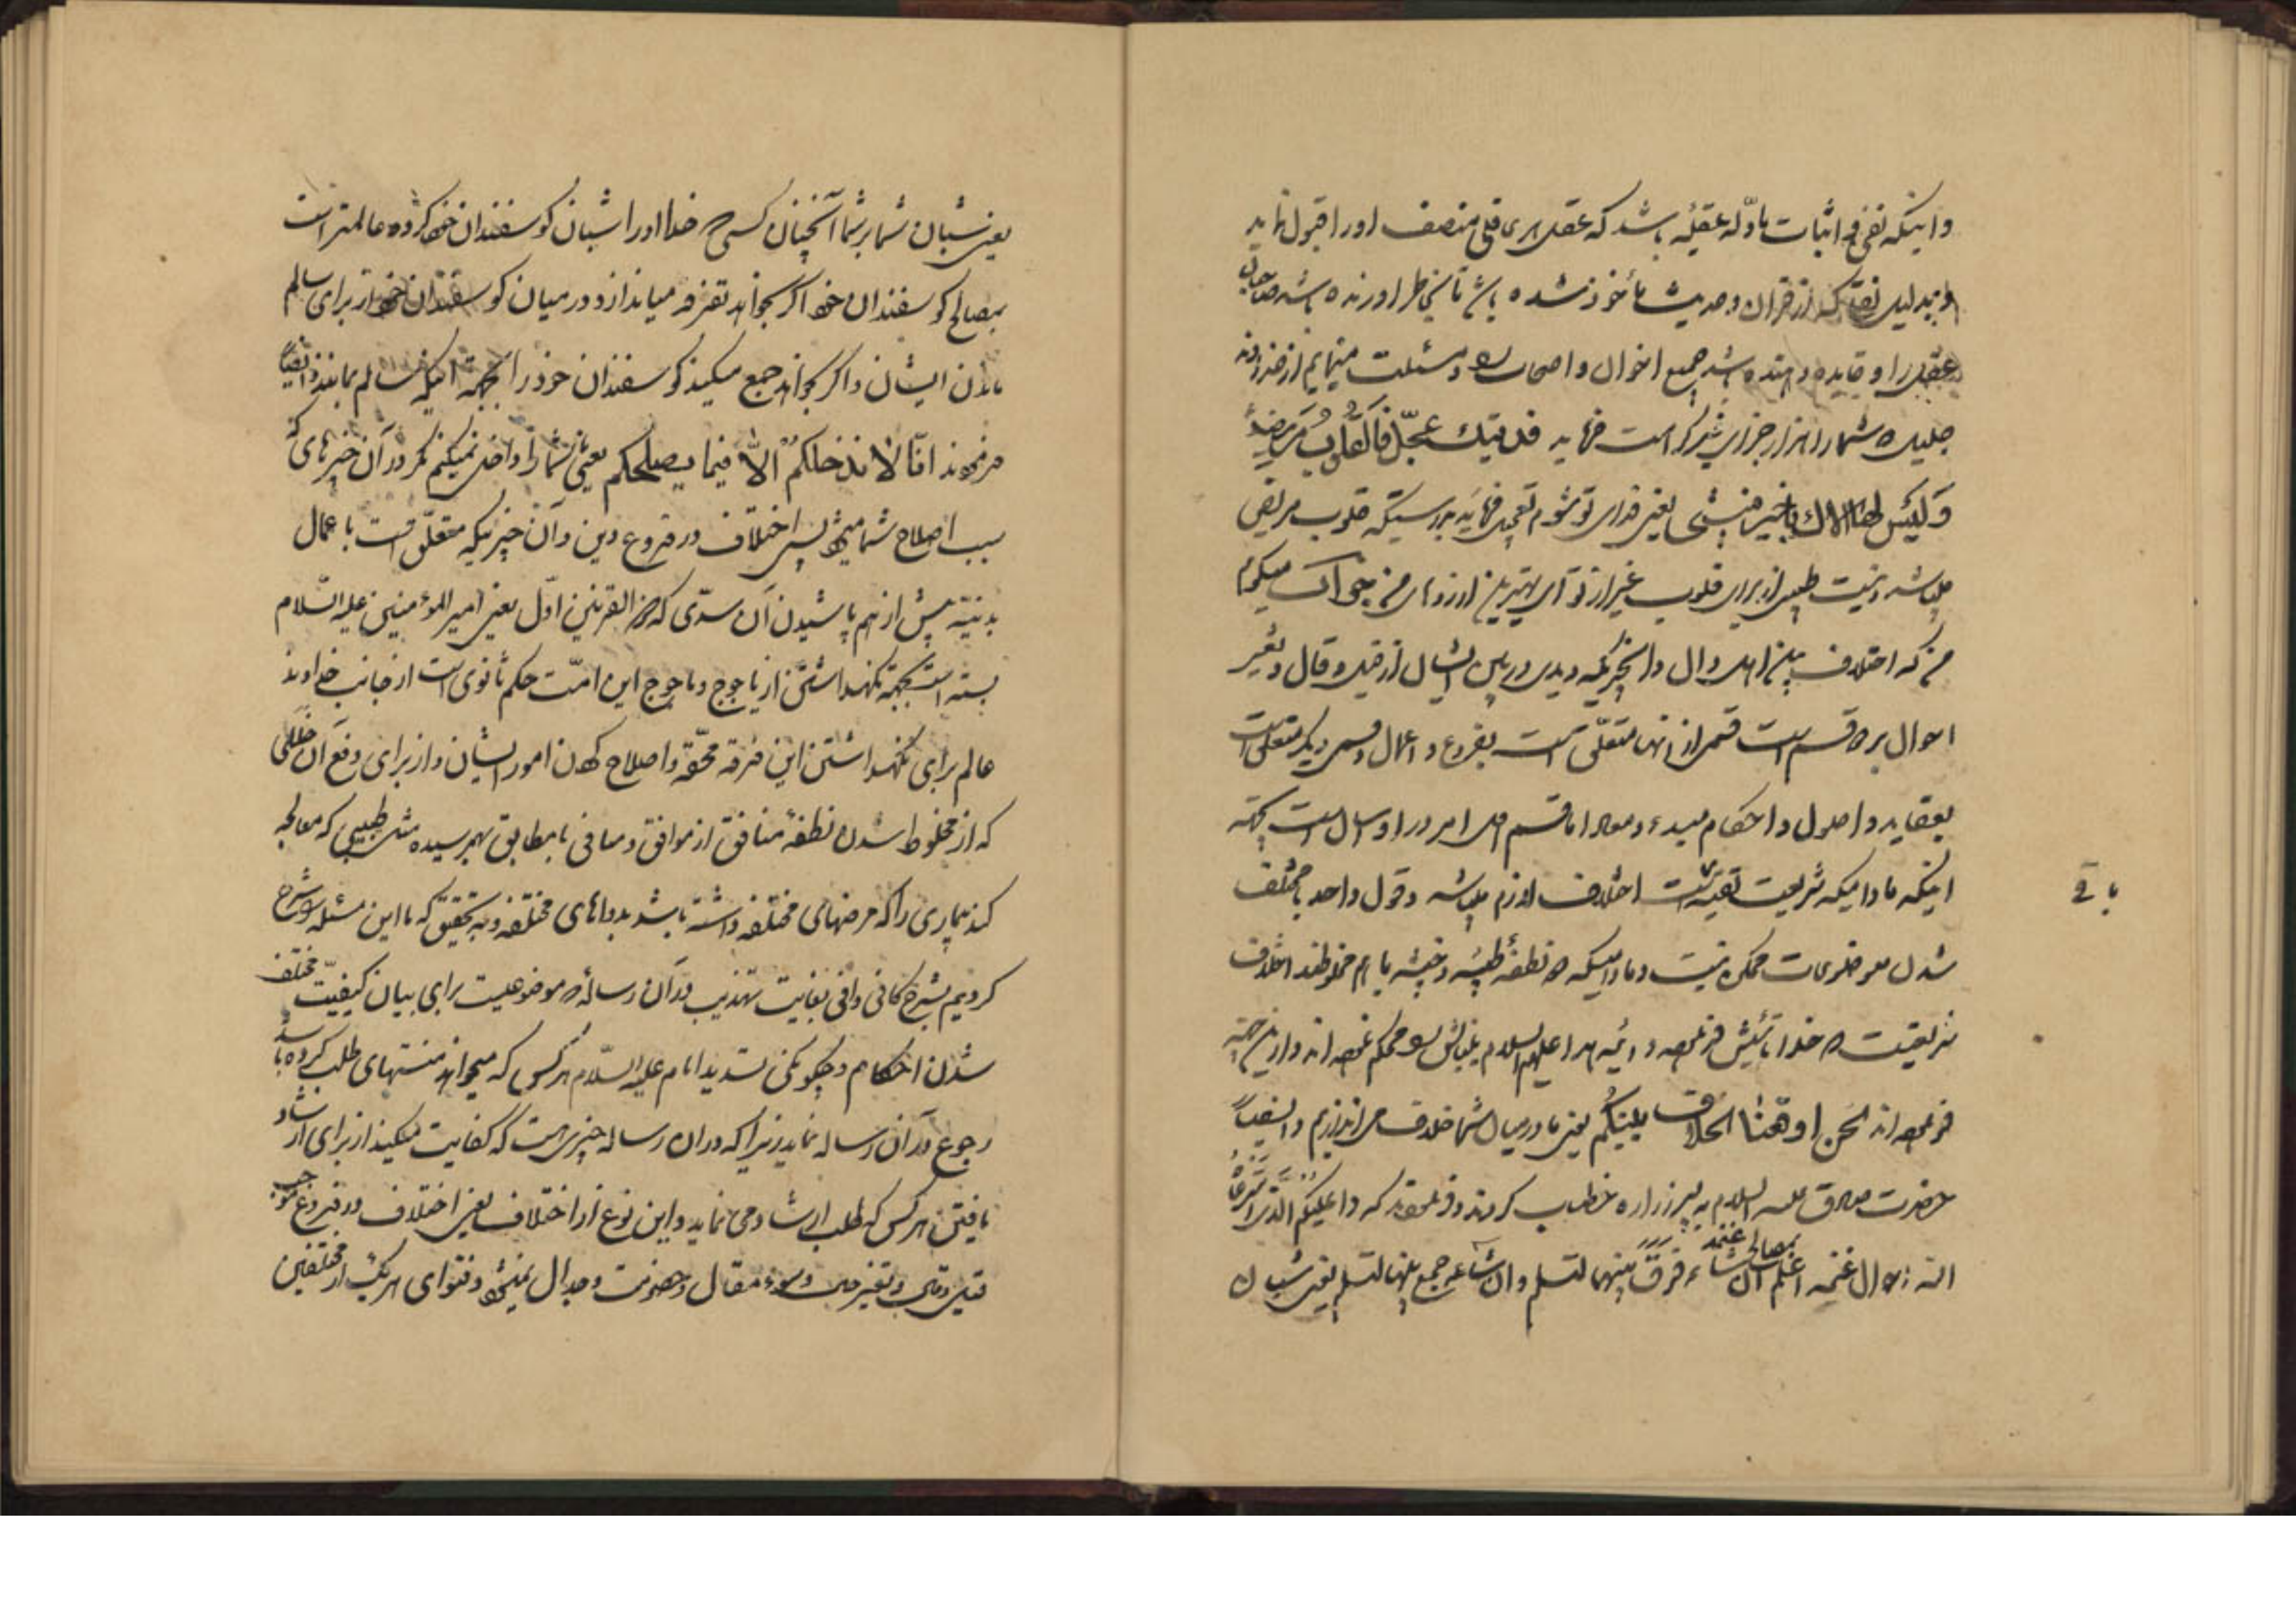 و اینکه نفی و اثبات بادلّه عقلیّه باشد که عقل هر منصف او را قبول نماید
و بدلیل نقلی که از قران و حدیث مأخوذ شده باشد تا
عقل را و فایده دهنده باشد جمیع اخوان و اصحاب و مسئلت مینمایم از خداوند
جلیل شما را هزار جزای فدیتك عجّل فالقلوب مریضة
و لیس لها الاك یعنی فدای تو شوم تعجیل فرمائید بدرستیکه قلوب مریض
میباشد و نیست طبیبی از برای قلوب غیر از تو ای بهترین جواب میگویم
من که اختلاف بین اهل و ان چیزیکه دیدی در بین ایشان از قیل و قال و تغییر
احوال بر دو قسم است قسمی از انها متعلّق است بفروع و اعمال و قسمی دیگر متعلّق است
بعقاید و اصول و احکام مبدء و معاد اما قسم اول امر در او سهل است بجهة
اینکه مادامیکه شریعت تقیه باقی است اختلاف لازم میباشد و قول واحد با مختلف
شدن موضوعات ممکن نیست و مادامیکه دو نطفهٔ طیّبه و خبیثه با هم مخلوطند اختلاف
شریعتیست که خدا تاسیس فرموده و ائمه هدا علیهم السلام بنیانش را محکم نموده اند و از این جهة
فرموده اند نحن اوقعنا الخلاف بینکم یعنی ما در میان شما خلاف می اندازیم و ایضاً
حضرت صادق علیه السلام به پسر زراره خطاب کردند و فرمودند که راعیکم الذی استرعاه
الله غنمه اعلم بمصالح غنمه ان شاء فرّق بینهما لتسلم و ان شاء جمع بینها لتسلم یعنی شبان
باقی
یعنی شبان شما بر شما آنچنان کسی که خدا او را شبان گوسفندان خود کرده عالمتر است
بمصالح گوسفندان خود اگر بخواهد تفرقه میاندازد در میان گوسفندان خود از برای سالم
ماندن ایشان و اگر بخواهد جمع میکند گوسفندان خود را بجهة اینکه سالم بمانند و ایضاً
فرمودند انّا لا ندخلکم الّا فیما یصلحکم یعنی ما شما را داخل نمیکنیم مگر در آن چیزهای که
سبب اصلاح شما میشود پس اختلاف در فروع دین و آن چیزیکه متعلّق است باعمال
بدنیّه پیش از هم پاشیدن آن سدّی که ذو القرنین اوّل یعنی امیر المؤمنین علیه السّلام
بسته است بجهة نگهداشتن از یاجوج و ماجوج این امّت حکم ثانوی است از جانب خداوند
عالم برای نگهداشتن این فرقه محقّه و اصلاح کردن امور ایشان و از برای دفع آن خللی
که از مخلوط شدن نطفهٔ منافق از موافق و منافی با مطابق بهم رسیده مثل طبیبی که معالجه
کند بیماری را که مرضهای مختلفه داشته باشد بدواهای مختلفه و به تحقیق که ما این مسئله را شرح
کردیم بشرح کافی وافی بغایت تهذیب در آن رساله که موضوعیست برای بیان کیفیّت مختلف
شدن احکام و چگونگی تسدید امام علیه السّلام هر کس که میخواهد منتهای طلب کرده باشد
رجوع در آن رساله نماید زیرا که در ان رساله چیزی هست که کفایت میکند از برای ارشاد
یافتن هر کس که طلب ارشاد می نماید و این نوع از اختلاف یعنی اختلاف در فروع موجب
قیل و قال و تغییر حال و سوء مقال و خصومت و جدال نمیشود و فتوای هر یک از مختلفین